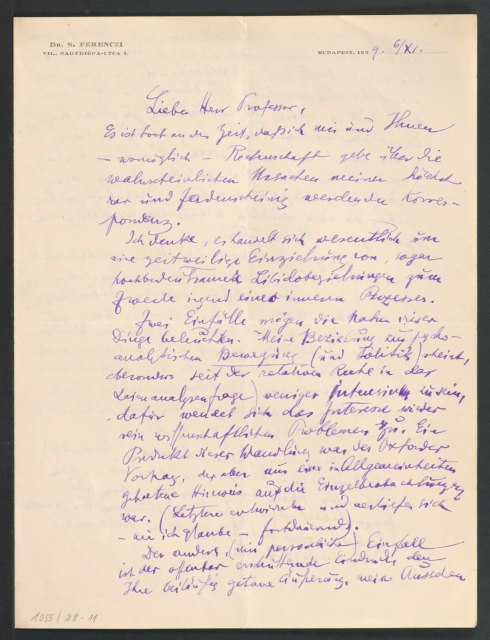 DR. S. FERENCZI
VII., NAGYDIÓFA-UTCA 3.
BUDAPEST, 192 9. 6/XI.
Lieber Herr Professor,
Es ist hoch an der Zeit, daß ich mir und Ihnen
– womöglich – Rechenschaft gebe über die
wahrscheinlichen Ursachen meiner höchst
rar und fadenscheinig werdenden Korres-
pondenz.
Ich denke, es handelt sich wesentlich um
eine zeitweilige Einziehung von, sogar
hochbedeutsamen Libidobeziehungen zum
Zwecke irgend eines inneren Prozesses.
Zwei Einfälle mögen die Natur dieser
Dinge beleuchten. Meine Beziehung zur psycho-
analytischen Bewegung (und Politik) scheint,
besonders seit der relativen Ruhe in der
Laienanalysenfrage) weniger intensiv zu sein,
dafür wendet sich das Interesse wieder
rein wissenschaftlichen Problemen zu. Ein
Produkt dieser Wandlung war der Oxforder
Vortrag, der aber nur eine in Allgemeinheiten
gehaltene Hinweis auf die Einzelbeobachtungen
war. (Letztere entwickeln und vertiefen sich
– wie ich glaube – fortdauernd).
Der andere, (rein persönliche) Einfall
ist der offenbar erschütternde Eindruck den
Ihre beiläufig getane Äußerung, mein Aussehen
1055/28-11